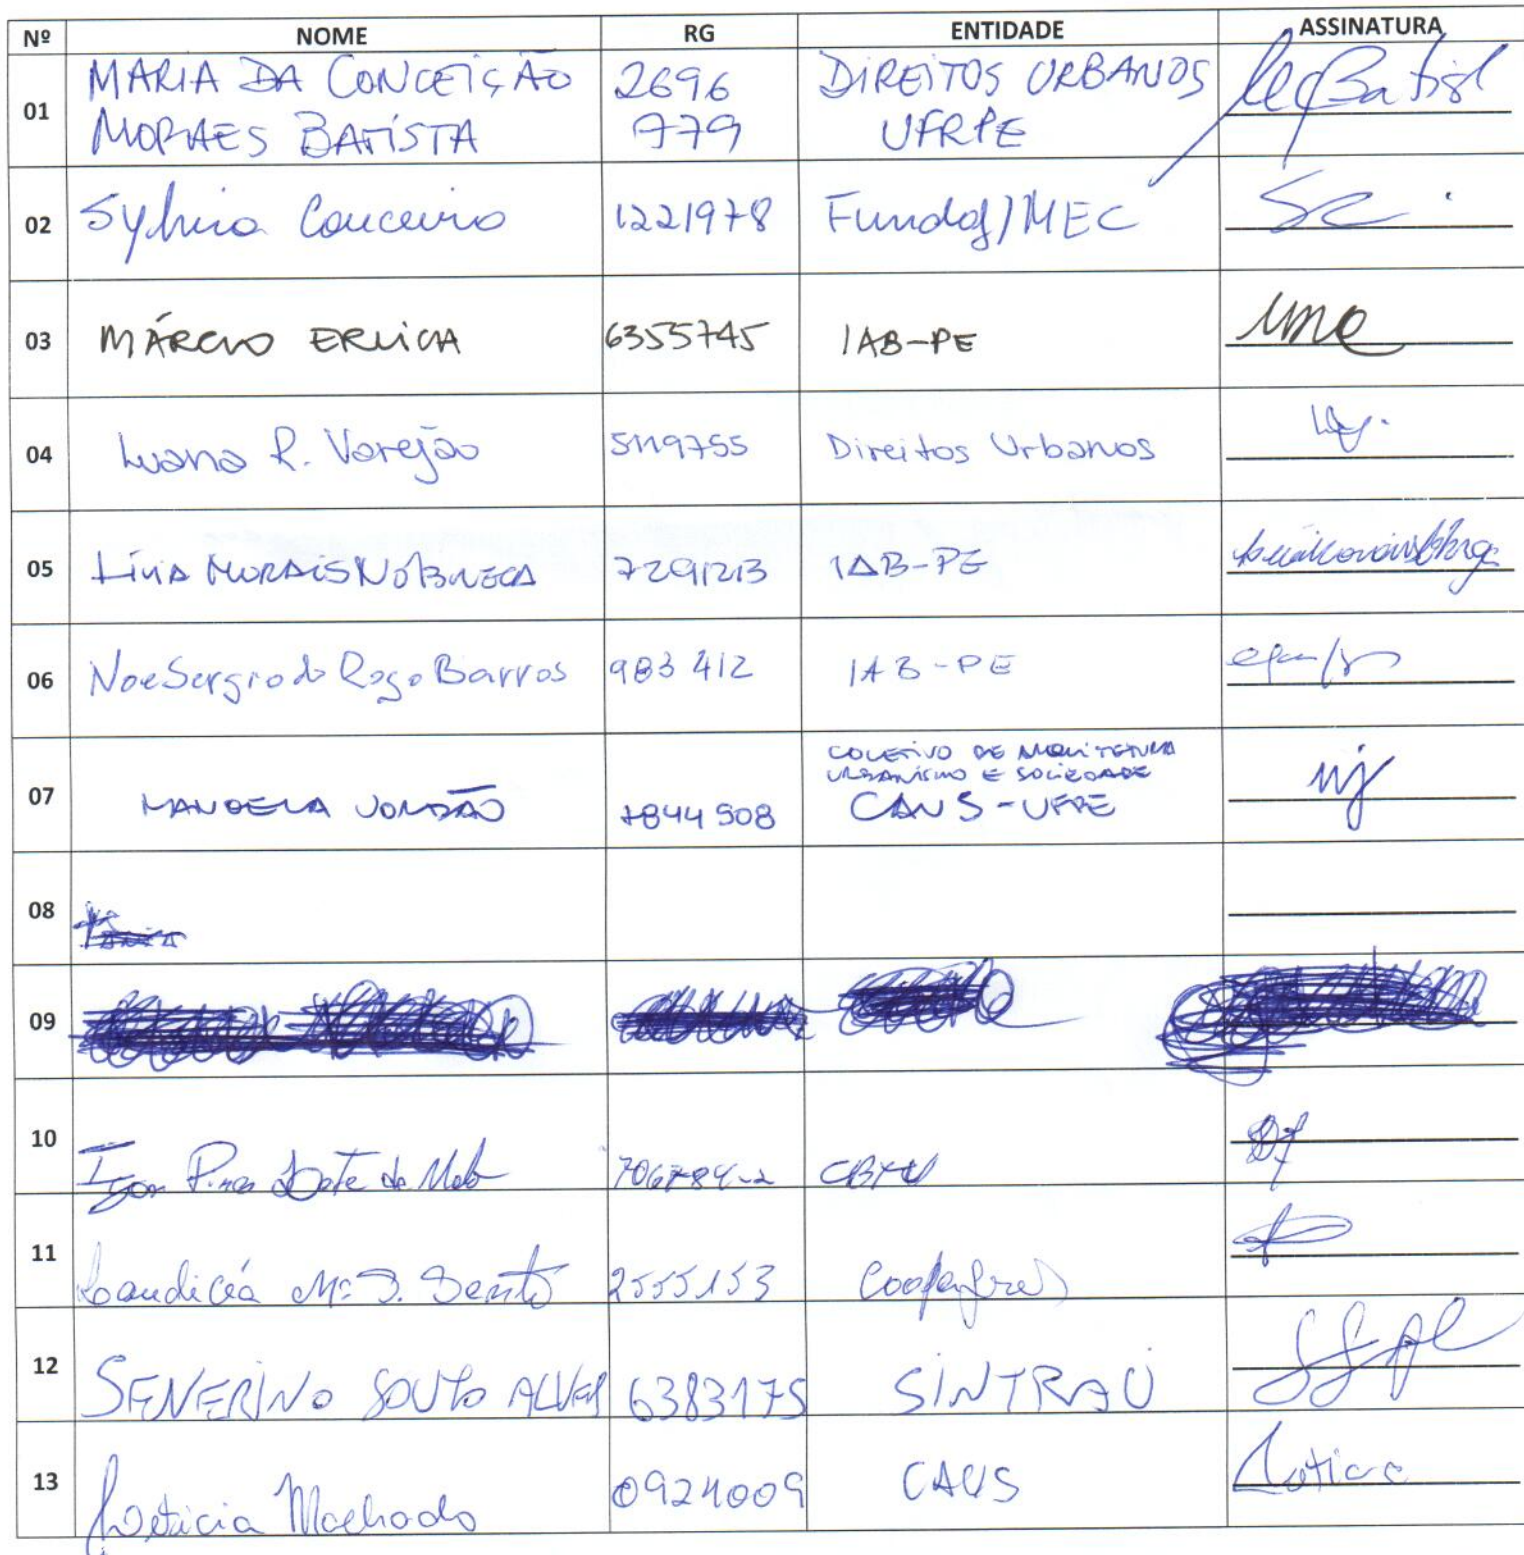 Nº NOME RG ENTIDADE ASSINATURA
01 MARIA DA CONCEIÇÃO MORAES BATISTA 2696 779 DIREITOS URBANOS UFRPE
02 Sylvia Couceiro 1221978 Fundaj/MEC
03 MÁRCIO ERLICH 6355745 IAB-PE
04 Luana R. Varejão 5119755 Direitos Urbanos
05 LÍVIA MORAIS NÓBREGA 7291213 IAB-PE
06 Noe Sergio do Rego Barros 983 412 IAB-PE
07 MANOELA JORDÃO 7844908 COLETIVO DE ARQUITETURA URBANISMO E SOCIEDADE CAUS-UFPE
08
09
10 Igor de Melo 706784-2 CBTU
11 Laudicéa Mª S. Bento 2555153
12 SEVERINO SOUTO ALVES 6383175 SINTRAU
13 Leticia Machado 0924009 CAUS Leticia